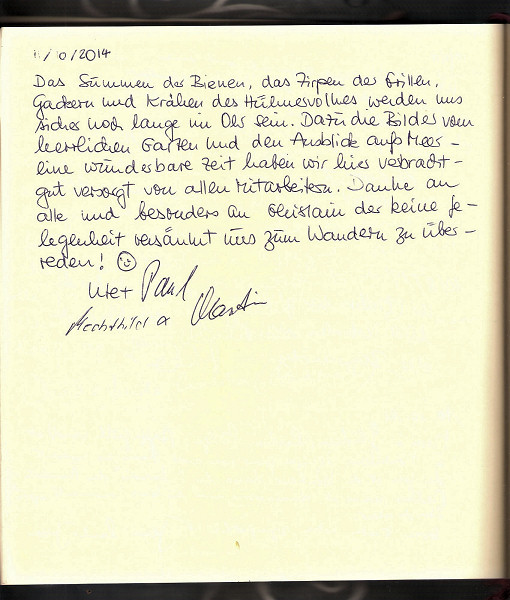 /10/2014
Das Summen der Bienen, das Zirpen der Grillen,
Gackern und Krähen des Hühnervolkes werden uns
sicher noch lange im Ohr sein. Dazu die Bilder vom
herrlichen Garten und den Ausblick aufs Meer -
eine wunderbare Zeit haben wir hier verbracht -
gut versorgt von allen Mitarbeitern. Danke an
alle und besonders an Ghislain der keine Ge-
legenheit versäumt uns zum Wandern zu über-
reden!
Paul
Mechthild & Martin